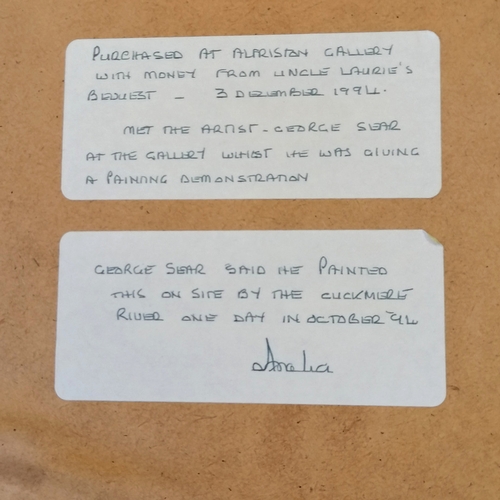 PURCHASED AT ALFRISTON GALLERY
WITH MONEY FROM UNCLE LAURIE'S
BEQUEST - 3 DECEMBER 1994.
MET THE ARTIST - GEORGE SEAR
AT THE GALLERY WHILST HE WAS GIVING
A PAINTING DEMONSTRATION
GEORGE SEAR SAID HE PAINTED
THIS ON SITE BY THE CUCKMERE
RIVER ONE DAY IN OCTOBER '94